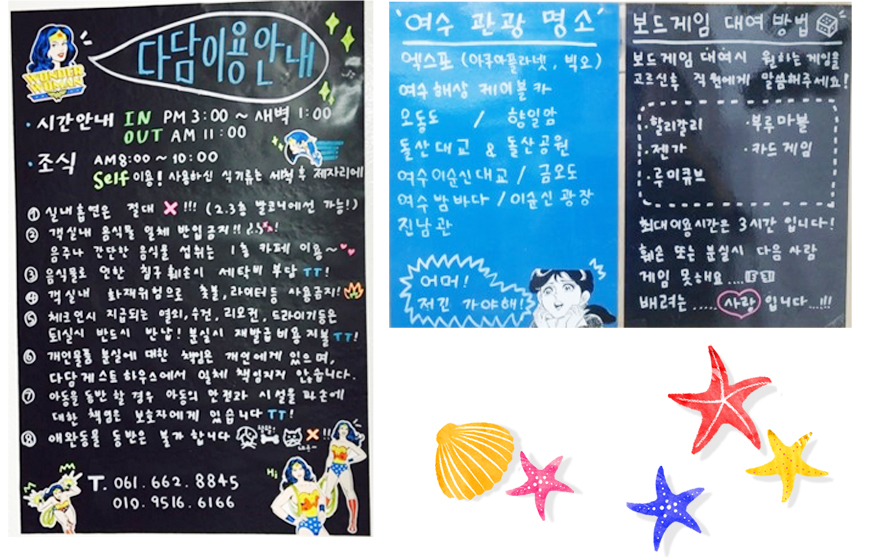 WONDER
WOMAN
다담이용안내
· 시간안내 IN PM 3:00 ~ 새벽 1:00
OUT AM 11:00
· 조식 AM 8:00 ~ 10:00
Self 이용! 사용하신 식기류는 세척 후 제자리에
① 실내흡연은 절대 X !!! (2.3층 발코니에선 가능!)
② 객실내 음식물 일체 반입금지!!
음주나 간단한 음식물 섭취는 1층 카페 이용~
③ 음식물로 인한 침구 훼손시 세탁비 부담 TT!
④ 객실내 화재위험으로 촛불, 라이터등 사용금지!
⑤ 체크인시 지급되는 열쇠, 수건, 리모컨, 드라이기등은
퇴실시 반드시 반납! 분실시 재발급비용 지불 TT!
⑥ 개인물품 분실에 대한 책임은 개인에게 있으며,
다담게스트하우스에서 일체 책임지지 않습니다.
⑦ 아동을 동반 할 경우 아동의 안전과 시설물 파손에
대한 책임은 보호자에게 있습니다 TT!
⑧ 애완동물 동반은 불가합니다 X !!
Hi
T. 061. 662. 8845
010. 9516. 6166
'여수 관광 명소'
엑스포 (아쿠아플라넷, 빅오)
여수해상 케이블카
오동도 / 향일암
돌산대교 & 돌산공원
여수이순신대교 / 금오도
여수 밤바다 / 이순신 광장
진남관
어머!
저긴 가야해!
보드게임 대여 방법
보드게임 대여시 원하는 게임을
고르신후 직원에게 말씀해주세요!
·할리갈리 ·부루마블
·젠가 ·카드게임
·루미큐브
최대이용시간은 3시간 입니다!
훼손 또는 분실시 다음 사람
게임 못해요....
배려는..... 사랑 입니다...!!!